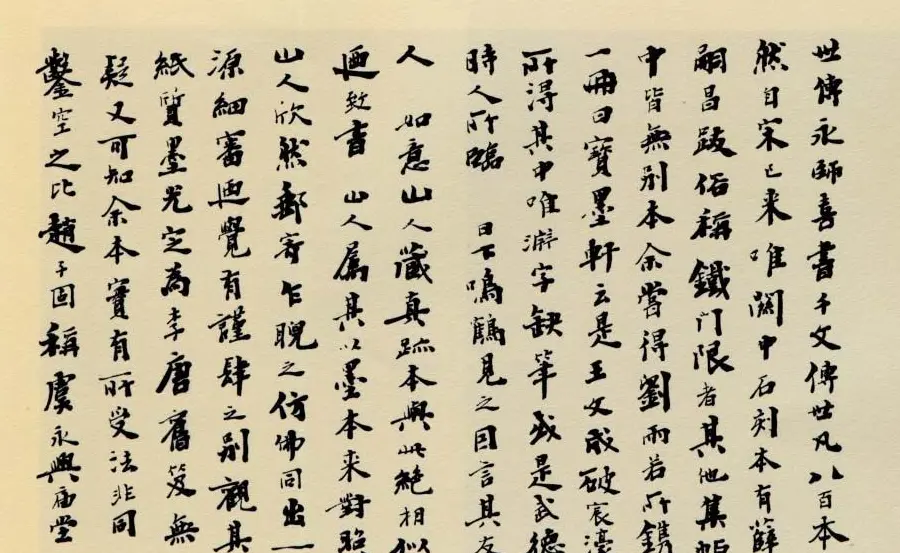 世傳永師喜書千文傳世凡八百本
然自宋已来唯關中石刻本有薛
嗣昌跋俗稱鐵门限者其他集帖
中皆無别本余嘗得劉雨若所鐫
一冊曰寶墨軒云是王文成破宸濠
所得其中唯淵字缺筆或是武德
時人所臨 日下鳴鶴見之因言其友
人 如意山人藏真跡本與此絶相似
迺致書 山人属其以墨本来對照
山人欣然郵寄乍睨之仿佛同出一
源細審迺覺有謹肆之别觀其
紙質墨光定為李唐舊笈無
疑又可知余本實有所受法非同
鑿空之比趙子固稱虞永興庙堂